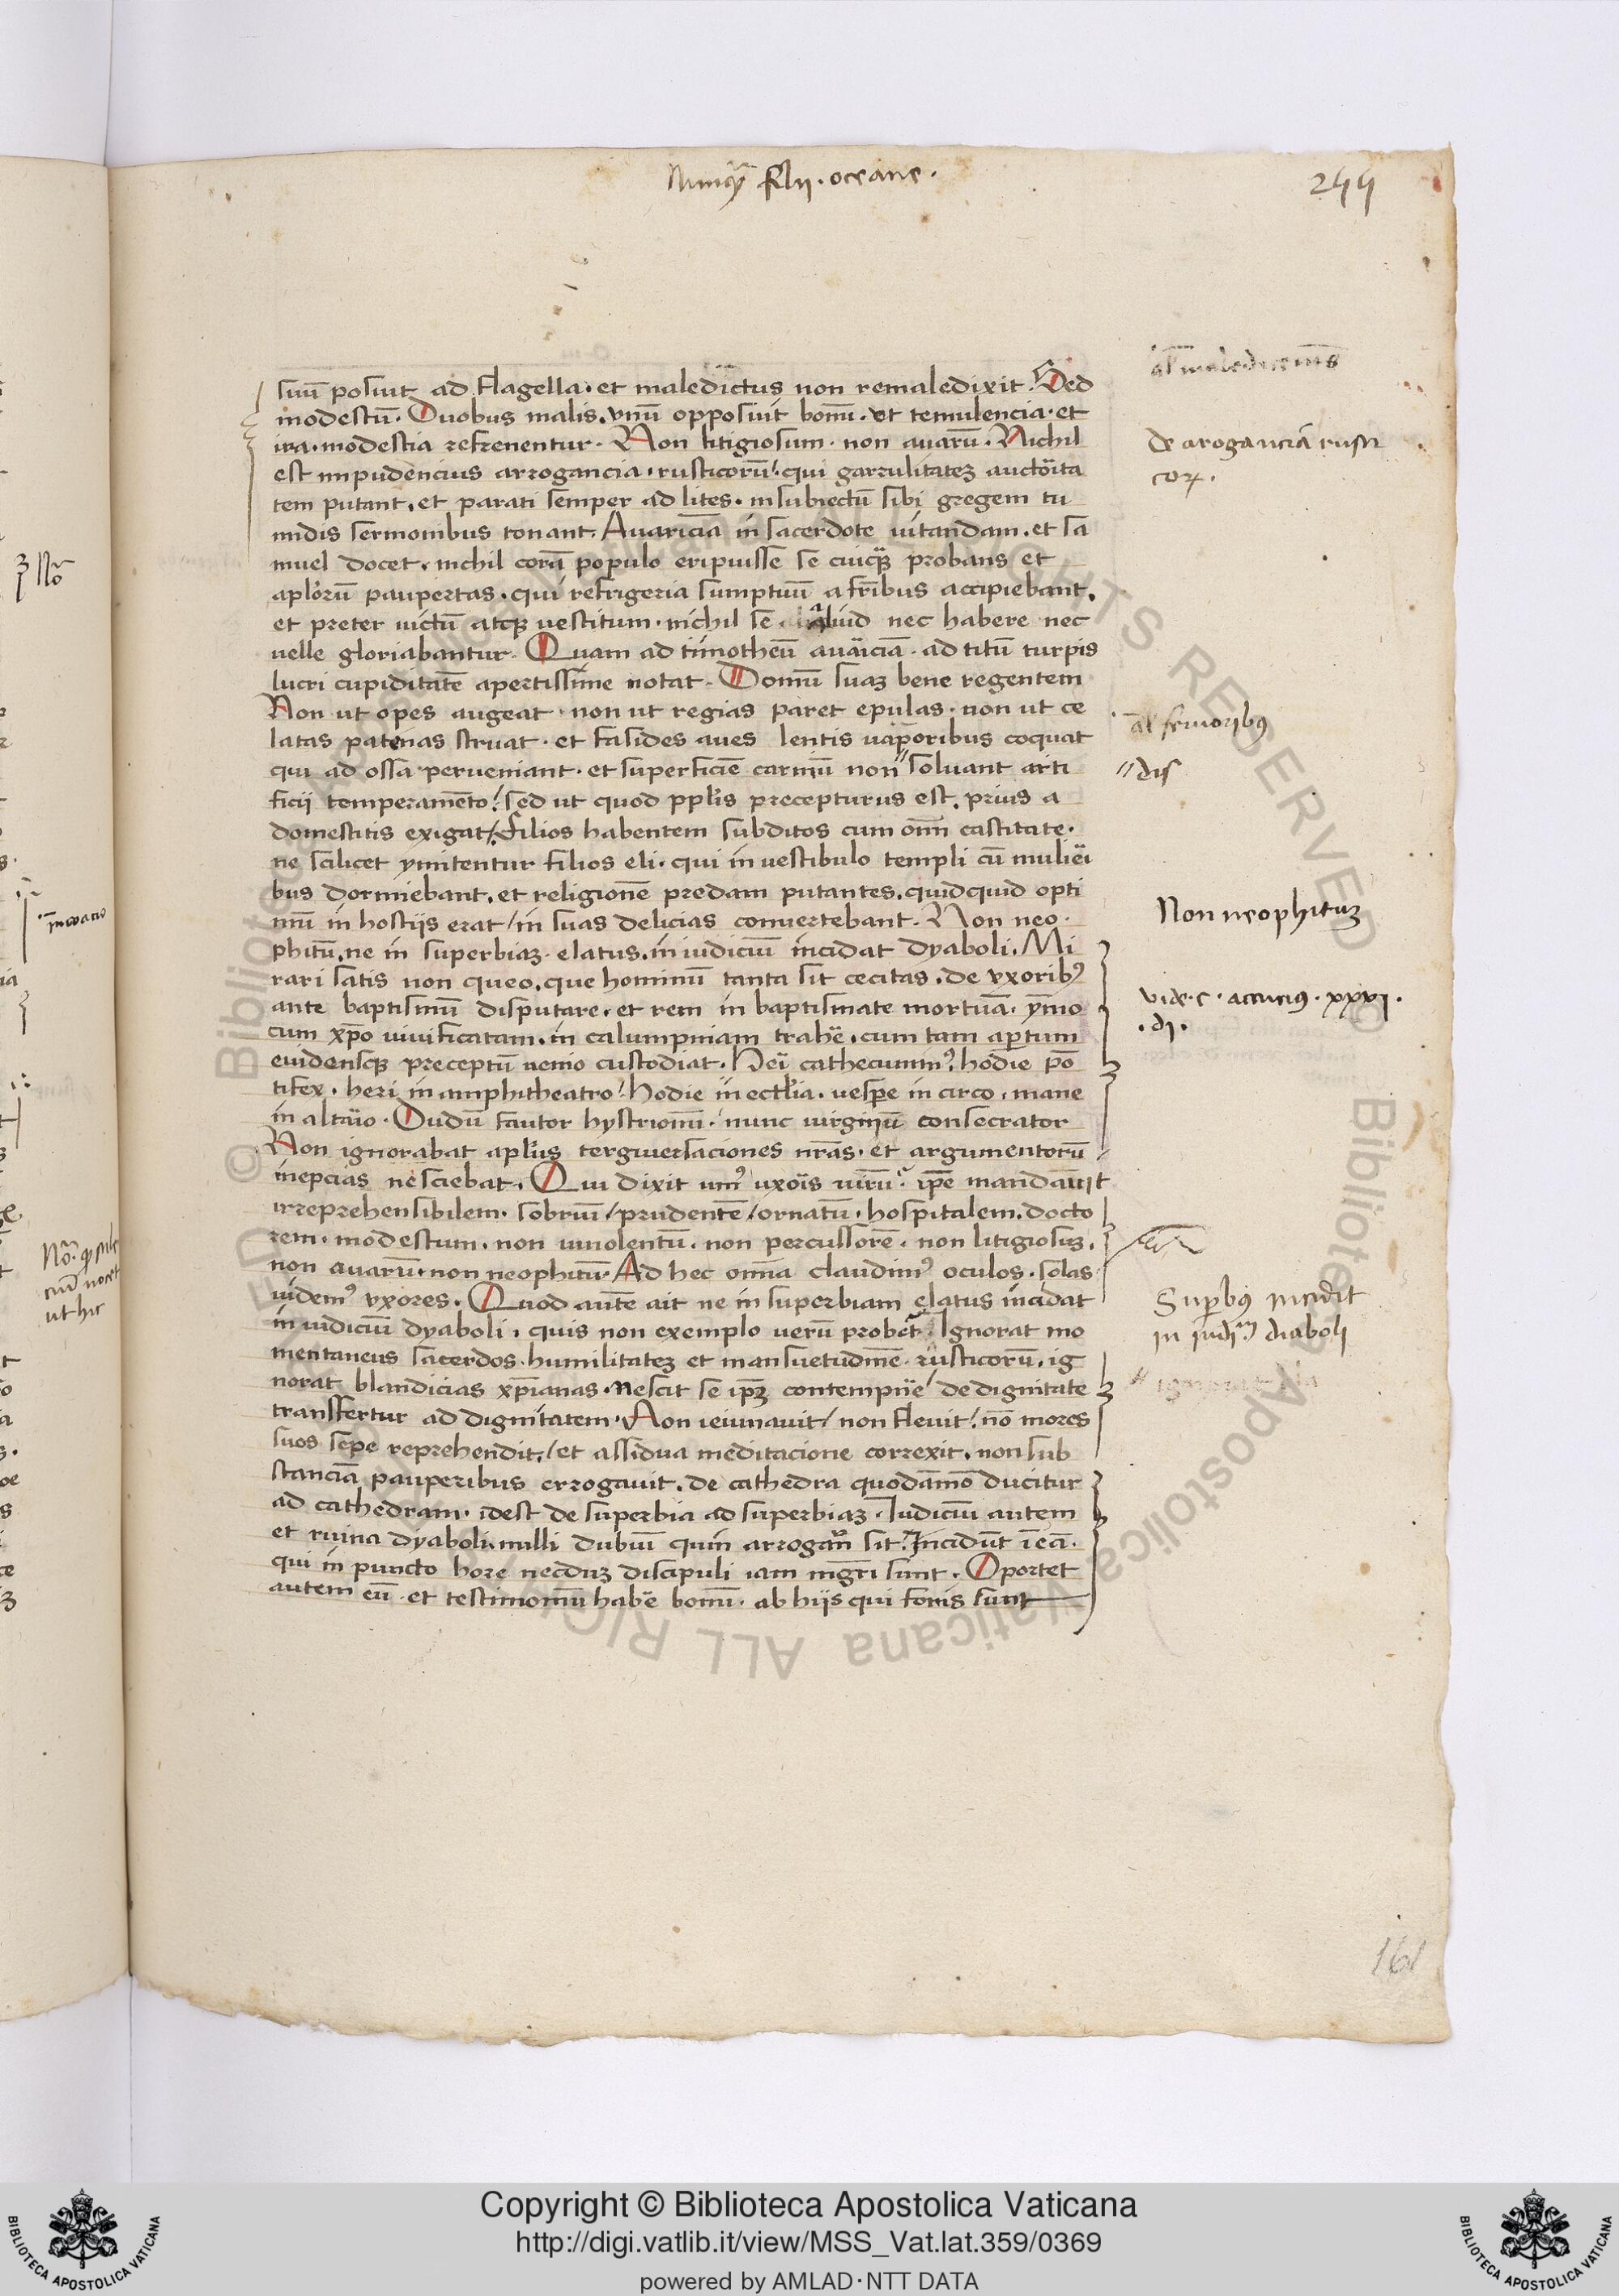 Nunqꝫ fili. oceane.
244
suū posuit ad flagella. et maledictus non remaledixit. Sed
modestū. Duobus malis. vnū opposuit bonū. vt temulencia. et
ira. modestia refrenentur. Non litigiosum. non auarū. Nichil
est impudencius arrogancia. rusticorū. qui garrulitateꝫ auctoīta
tem putant. et parati semper ad lites. in subiectū sibi gregem tu
midis sermonibus tonant. Auariciā in sacerdote uitandam. et sa
muel docet. nichil corā populo eripuisse se cuiqꝫ probans et
aplōrū paupertas. qui refrigeria sumptuū a frībus accipiebant.
et preter uictū atqꝫ vestitum. nichil se aliud nec habere nec
uelle gloriabantur. Quam ad timotheū auaīciā. ad titū turpis
lucri cupiditatē apertissime notat. Domū suaꝫ bene regentem
Non ut opes augeat. non ut regias paret epulas. non ut ce
latas patenas struat. et fasides aues lentis uaporibus coquat
qui ad ossa perueniant. et superficiē carniū non // soluant arti
ficii temperamēto. sed ut quod pplīs precepturus est. prius a
domesticis exigat. Filios habentem subditos cum omī castitate.
ne scilicet ymitentur filios eli. qui in vestibulo templi cū mulieī
bus dormiebant. et religionē predam putantes. quidquid opti
mū in hostijs erat / in suas delicias conuertebant. Non neo
phitū. ne in superbiaꝫ elatus. in iudiciū incidat dyaboli. Mi
rari satis non queo. que hominū tanta sit cecitas. de vxoribꝰ
ante baptismū disputare. et rem in baptismate mortuā. ymo
cum xp̄o viuificatam. in calumpniam trahē. cum tam apertum
euidensqꝫ preceptū nemo custodiat. Heī cathecuminꝰ. hodie pō
tifex. heri in amphitheatro. hodie in ecclīa. vespe in circo. mane
in altaīo. Dudū fautor hystrionū. nunc uirginū consecrator
Non ignorabat aplūs terguiersaciones nrās. et argumentorū
inepcias nesciebat. Qui dixit uniꝰ uxoīs uirū. ipē mandauit
irreprehensibilem. sobriū / prudentē / ornatū. hospitalem. docto
rem. modestum. non uinolentū. non percussorē. non litigiosuꝫ.
non auarū. non neophitū. Ad hec omīa claudimꝰ oculos. solas
uidemꝰ vxores. Quod autē ait ne in superbiam elatus incidat
in iudiciū dyaboli. quis non exemplo uerū probet. Ignorat mo
mentaneus sacerdos. humilitateꝫ et mansuetudinē. rusticorū. ig
norat blandicias xp̄ianas. Nescit se ipꝫ contempnē / de dignitate
transfertur ad dignitatem. Non ieiunauit / non fleuit / nō mores
suos sepe reprehendit. / et assidua meditacione correxit. non sub
stanciā pauperibus errogauit. de cathedra quodāmō ducitur
ad cathedram. idest de superbia ad superbiaꝫ. Iudiciū autem
et ruina dyaboli. nulli dubiū quin arrogan sit. Incidūt ī eā.
qui in puncto hore necduꝫ discipuli iam mgrī sunt. Oportet
autem eū. et testimoniū habē bonū. ab hijs qui foris sunt
de arogancia rusti
corꝝ.
al̄ femoribꝰ
// dis
Non neophituꝫ
vide. c. accutiꝰ. xxxi.
.di.
Supbꝰ incidit
in iudiꝫ diaboli
161
Copyright © Biblioteca Apostolica Vaticana
http://digi.vatlib.it/view/MSS_Vat.lat.359/0369
powered by AMLAD·NTT DATA
BIBLIOTECA APOSTOLICA VATICANA
BIBLIOTECA APOSTOLICA VATICANA